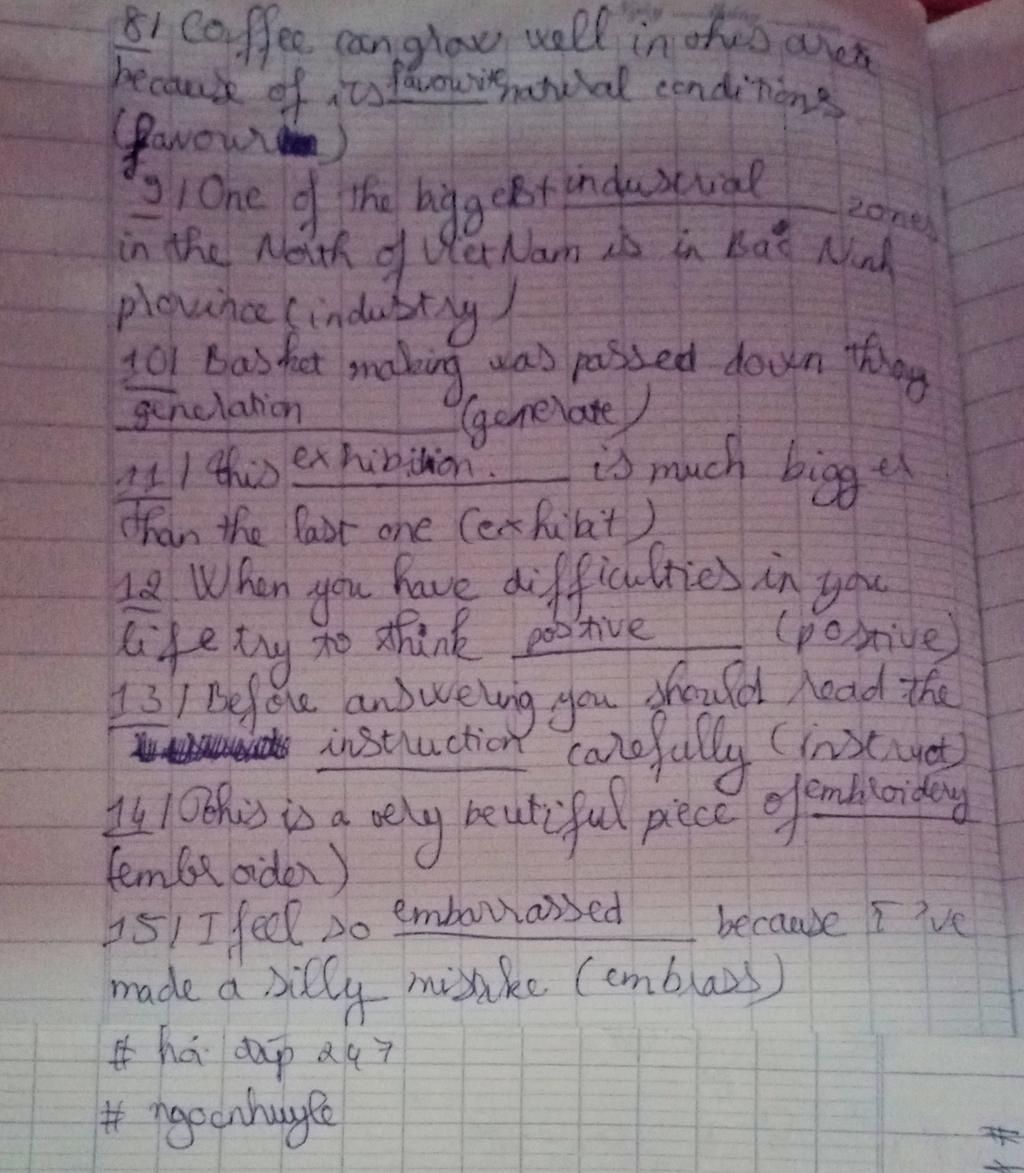 8/ Coffee can grow well in this area
because of its favourite natural conditions
(favour)
9/ One of the biggest industrial zones
in the North of Viet Nam is in Bac Ninh
province (industry)
10/ Basket making was passed down throy
generation (generate)
11/ this exhibition. is much bigger
than the last one (exhibit)
12 When you have difficulties in you
life try to think postive (postive)
13/ Before answering you should read the
instruction carefully (instruct)
14/ This is a very beutiful piece of embroidery
(embroider)
15/ I feel so embarrassed because I've
made a silly mistake (embrass)
# hỏi đáp 247
# ngocnhuyle
#